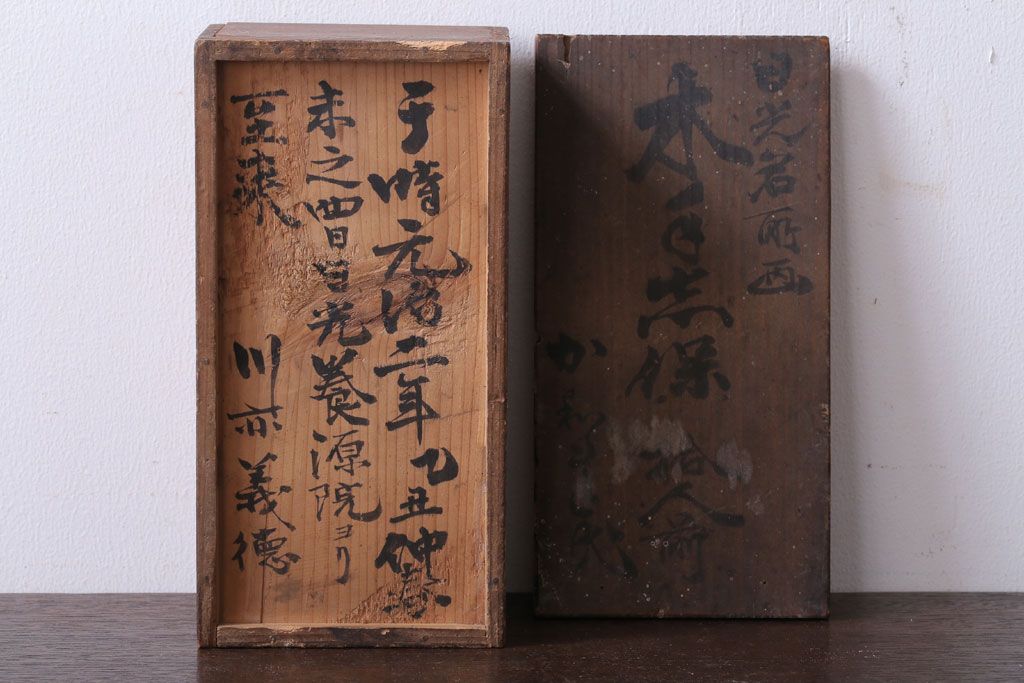 日光名所画
木手志保 拾人前
于時元治二年乙丑仲春
未之四日日光養源院ヨリ
至来
川亦義徳